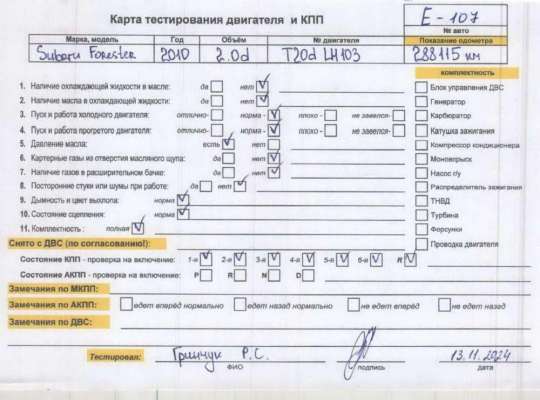 Карта тестирования двигателя и КПП
E - 107
№ авто
Марка, модель Год Объём № двигателя Показание одометра
Subaru Forester 2010 2.0d T20d LH103 288115 км
комплектность
1. Наличие охлаждающей жидкости в масле: да нет Блок управления ДВС
2. Наличие масла в охлаждающей жидкости: да нет Генератор
3. Пуск и работа холодного двигателя: отлично- норма - плохо - не завелся- Карбюратор
4. Пуск и работа прогретого двигателя: отлично- норма - плохо - не завелся- Катушка зажигания
5. Давление масла: есть нет Компрессор кондиционера
6. Картерные газы из отверстия масляного щупа: да нет Моновпрыск
7. Наличие газов в расширительном бачке: да нет Насос г/у
8. Посторонние стуки или шумы при работе: да нет Распределитель зажигания
9. Дымность и цвет выхлопа: норма ТНВД
10. Состояние сцепления: норма Турбина
11. Комплектность : полная Форсунки
Снято с ДВС (по согласованию!): Проводка двигателя
Состояние КПП - проверка на включение: 1-я 2-я 3-я 4-я 5-я 6-я R
Состояние АКПП - проверка на включение: P R N D
Замечания по МКПП:
Замечания по АКПП: едет вперёд нормально едет назад нормально не едет вперёд не едет назад
Замечания по ДВС:
Тестировал: Гринчук Р.С. 13.11.2024
ФИО подпись дата